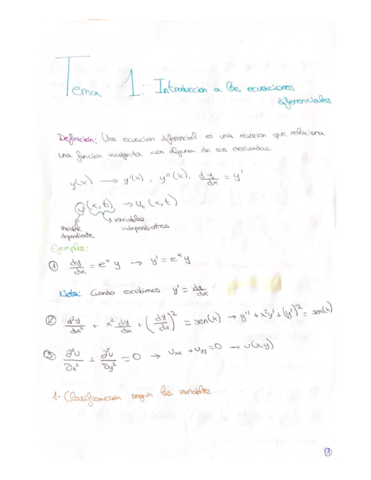 Tema 1: Introducción a las ecuaciones
diferenciales
Definición: Una ecuacion diferencial es una ecuacion que relaciona
una funcion incógnita con alguna de sus derivadas.
y(x) → y'(x), y''(x), dy/dx = y'
u(x,t) → u_t(x,t)
variable
dependiente
variables
independientes
Ejemplos:
① dy/dx = e^x y → y' = e^x y
Nota: Cuando escribimos y' = dy/dx
② d²y/dx² + x² dy/dx + (dy/dx)² = sen(x) → y'' + x²y' + (y')² = sen(x)
③ ∂²u/∂x² + ∂²u/∂y² = 0 → u_xx + u_yy = 0 → u(x,y)
1. Clasificacion según las variables